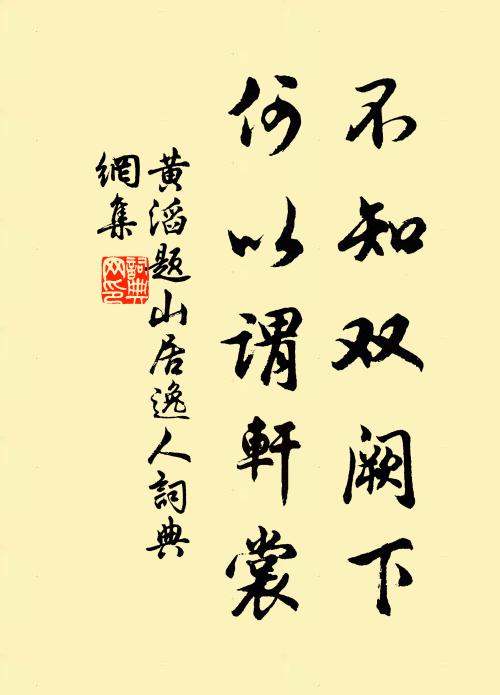 不知双阙下
何以谓軒裳
黄滔题山居逸人詞典
網集
詞典網印